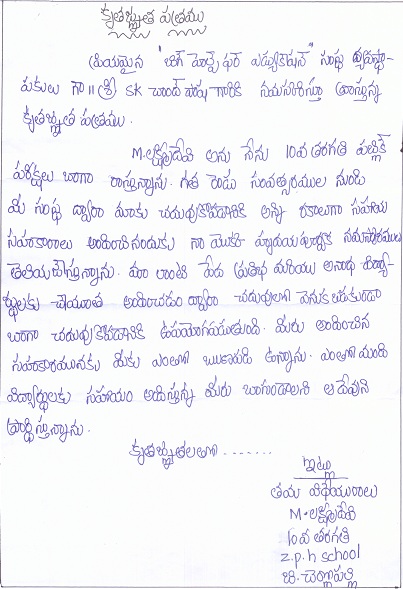 కృతజ్ఞత పత్రము
ప్రియమైన "బిగ్ హెల్ప్ ఫర్ ఎడ్యుకేషన్" సంస్థ వ్యవస్థా-
పకులు గా॥ శ్రీ SK చాంద్ పాషా గారికి నమస్కరిస్తూ వ్రాస్తున్న
కృతజ్ఞత పత్రము.
M. లక్ష్మీదేవి అను నేను 10వ తరగతి పబ్లిక్
పరీక్షలు బాగా రాస్తున్నాను. గత రెండు సంవత్సరముల నుండి
మీ సంస్థ ద్వారా మాకు చదువుకోవడానికి అన్ని రకాలుగా సహాయ
సహకారాలు అందించినందుకు నా యొక్క హృదయపూర్వక నమస్కారములు
తెలియచేస్తున్నాను. మా లాంటి పేద ప్రతిభ మరియు అనాథ విద్యా-
ర్థులకు చేయూత అందించడం ద్వారా చదువులో వెనుకబడకుండా
బాగా చదువుకోవడానికి ఉపయోగపడుతుంది. మీరు అందించిన
సహకారమునకు మీకు ఎంతో ఋణపడి ఉన్నాను. ఎంతోమంది
విద్యార్థులకు సహాయం అందిస్తున్న మీరు బాగుండాలని ఆ దేవుని
ప్రార్థిస్తున్నాను.
కృతజ్ఞతలతో .......
ఇట్లు
తమ విధేయురాలు
M. లక్ష్మీదేవి
10వ తరగతి
Z.P.H School
బి. చెర్లోపల్లి